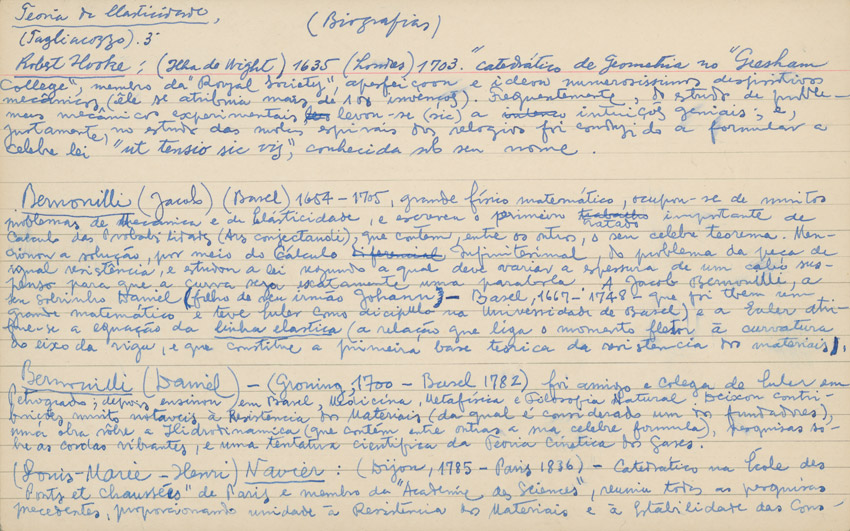 Teoria da Elasticidade,
(Biografias)
(Tagliacozzo). 5
Robert Hooke; (Ilha de Wight) 1635 (Londres) 1703. "catedrático de Geometria no "Gresham
College", membro da "Royal Society", aperfeiçoou e ideou numerosissimos dispositivos
mecânicos, (ele se atribuia mais de 100 invenços). Frequentemente, do estudo de proble-
mas mecânicos experimentais levou-se (sic) a intuiçõs geniais, e,
justamente no estudo das molas espirais dos relogios foi conduzido a formular a
celebre lei "ut tensio sic vis", conhecida sob seu nome.
Bernouilli (Jacob) (Basel) 1654-1705, grande físico matemático, ocupou-se de muitos
problemas de Mecanica e de Elásticidade, e escreveu o primeiro trabalho tratado importante de
Calculo das Probabilidades (Ars conjectandi), que contem, entre os outros, o seu celebre teorema. Men-
cionou a solução, por meio do Cálculo Diferencial Infinitesimal, do problema da peça de
igual resistência, e estudou a lei segundo a qual deve variar a espessura de um cabo sus-
penso para que a curva seja exatamente uma parabola. A Jacob Bernouilli, a
seu sobrinho Daniel (filho de seu irmão Johann) - Basel, 1667-1748 - que foi tbem um
grande matemático e teve Euler como discipulo na Universidade de Basel) e a Euler atri-
bue-se a equação da linha elastica (a relação que liga o momento fletor à curvatura
do eixo da viga, e que constitue a primeira base teorica da resistencia dos materiais).
Bernouilli (Daniel) - (Groning, 1700 - Basel 1782) foi amigo e colega de Euler em
Petrogrado; depois ensinou em Basel, Medicina, Metafísica e Filosofia Natural. Deixou contri-
buições muito notaveis à Resistencia dos Materiais (da qual é considerado um dos fundadores),
uma obra sôbre a Hidrodinamica (que contém entre outras a sua celebre formula), pesquisas so-
bre as cordas vibrantes, e uma tentativa cientifica da Teoria Cinética dos Gases.
(Louis-Marie-Henri) Navier: (Dijon, 1785 - Paris 1836) - Catedrático na École des
"Ponts et Chaussées" de Paris e membro da "Academie des Sciences", reuniu todas as pesquisas
precedentes, proporcionando unidade à Resistência dos Materiais e à Estabilidade das Cons-